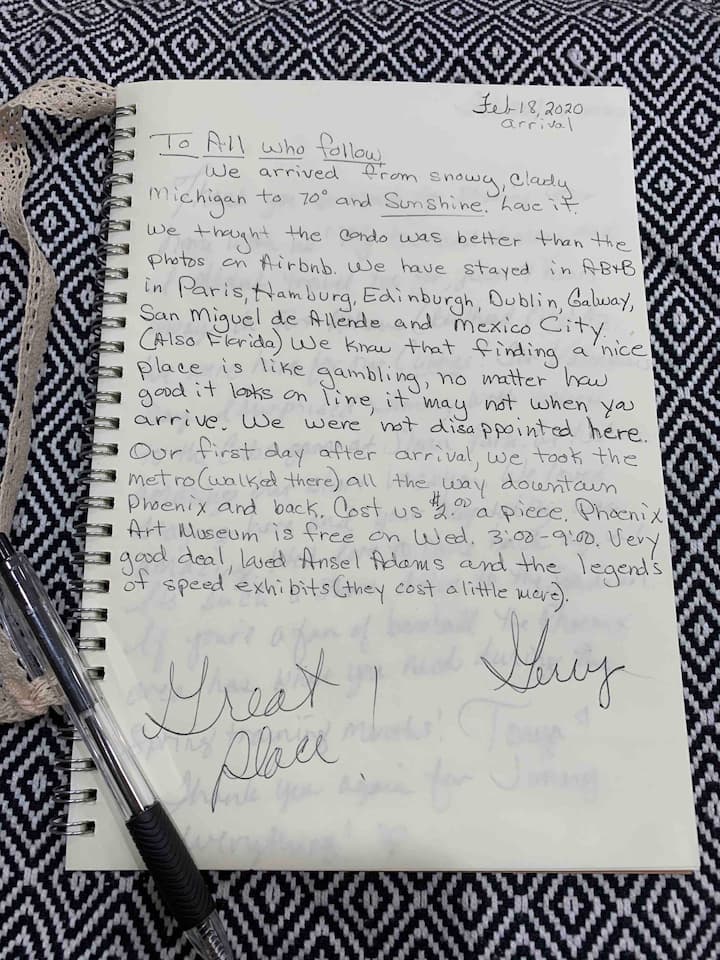 Feb 18, 2020
arrival
To All who follow
We arrived from snowy, clady
Michigan to 70° and Sunshine. Love it.
We thought the condo was better than the
photos on Airbnb. We have stayed in AB+B
in Paris, Hamburg, Edinburgh, Dublin, Galway,
San Miguel de Allende and Mexico City.
(Also Florida) We know that finding a nice
place is like gambling, no matter how
good it looks on line, it may not when you
arrive. We were not disappointed here.
Our first day after arrival, we took the
metro (walked there) all the way downtain
Phoenix and back. Cost us $2.00 a piece. Phoenix
Art Museum is free on Wed. 3:00-9:00. Very
good deal, loved Ansel Adams and the legends
of speed exhibits (they cost a little more).
Great
place